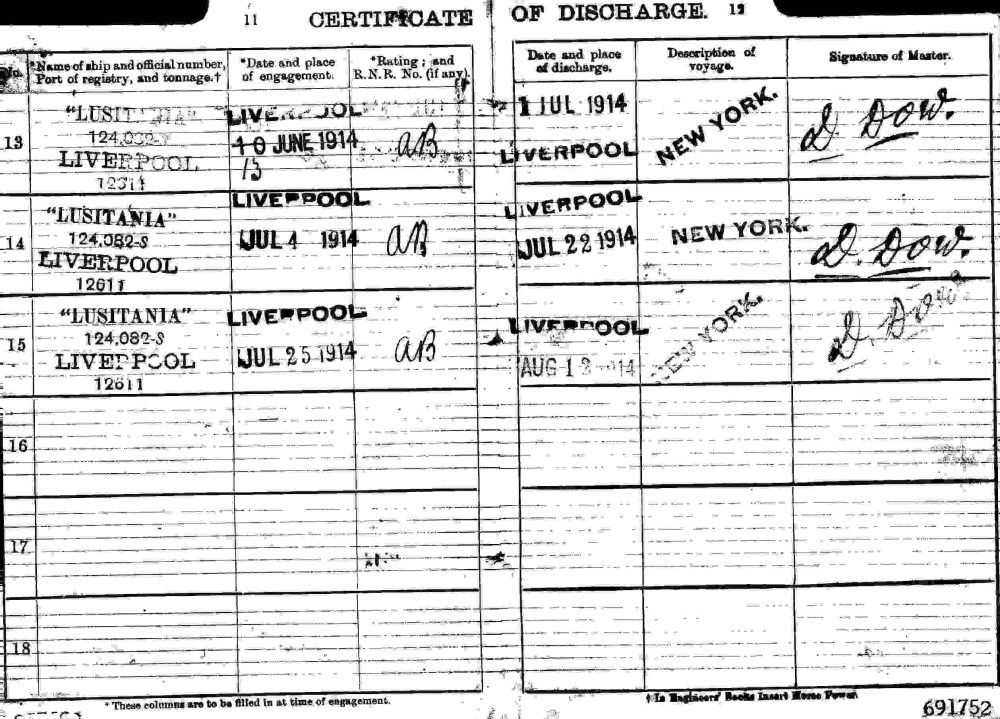 11 CERTIFICATE OF DISCHARGE. 12
No. *Name of ship and official number, Port of registry, and tonnage.†
*Date and place of engagement.
*Rating; and R.N.R. No. (if any).
Date and place of discharge.
Description of voyage.
Signature of Master.
13
"LUSITANIA"
LIVERPOOL
LIVERPOOL
10 JUNE 1914
13
AB
1 JUL 1914
LIVERPOOL
NEW YORK.
D Dow.
14
"LUSITANIA"
124,082-S
LIVERPOOL
12611
LIVERPOOL
JUL 4 1914
AB
LIVERPOOL
JUL 22 1914
NEW YORK.
D. Dow.
15
"LUSITANIA"
124,082-S
LIVERPOOL
12611
LIVERPOOL
JUL 25 1914
AB
LIVERPOOL
AUG 12
NEW YORK.
D. Dow
16
17
18
* These columns are to be filled in at time of engagement.
† In Engineers' Books Insert Horse Power.
691752